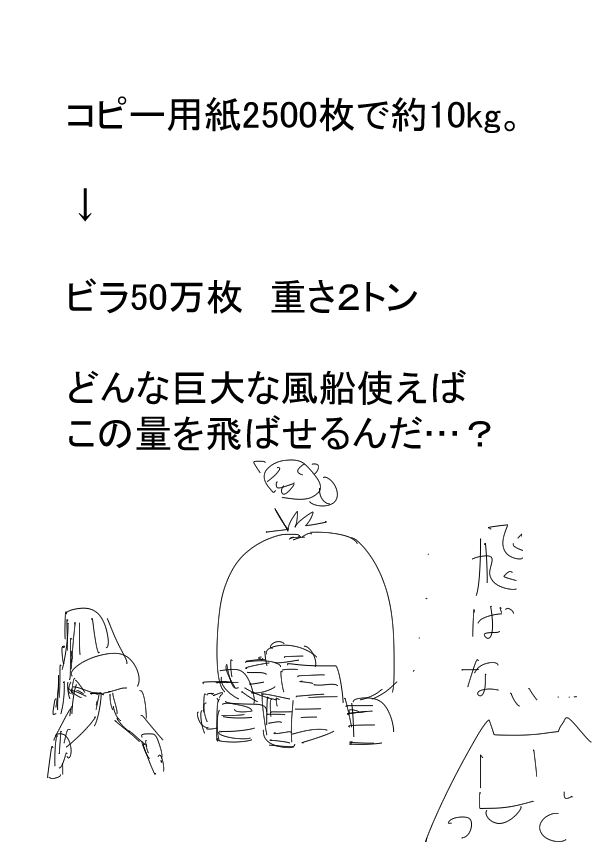 コピー用紙2500枚で約10kg。
↓
ビラ50万枚　重さ２トン
どんな巨大な風船使えば
この量を飛ばせるんだ…？
飛ばない…